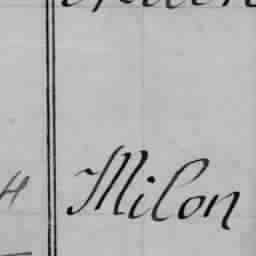 H Milon